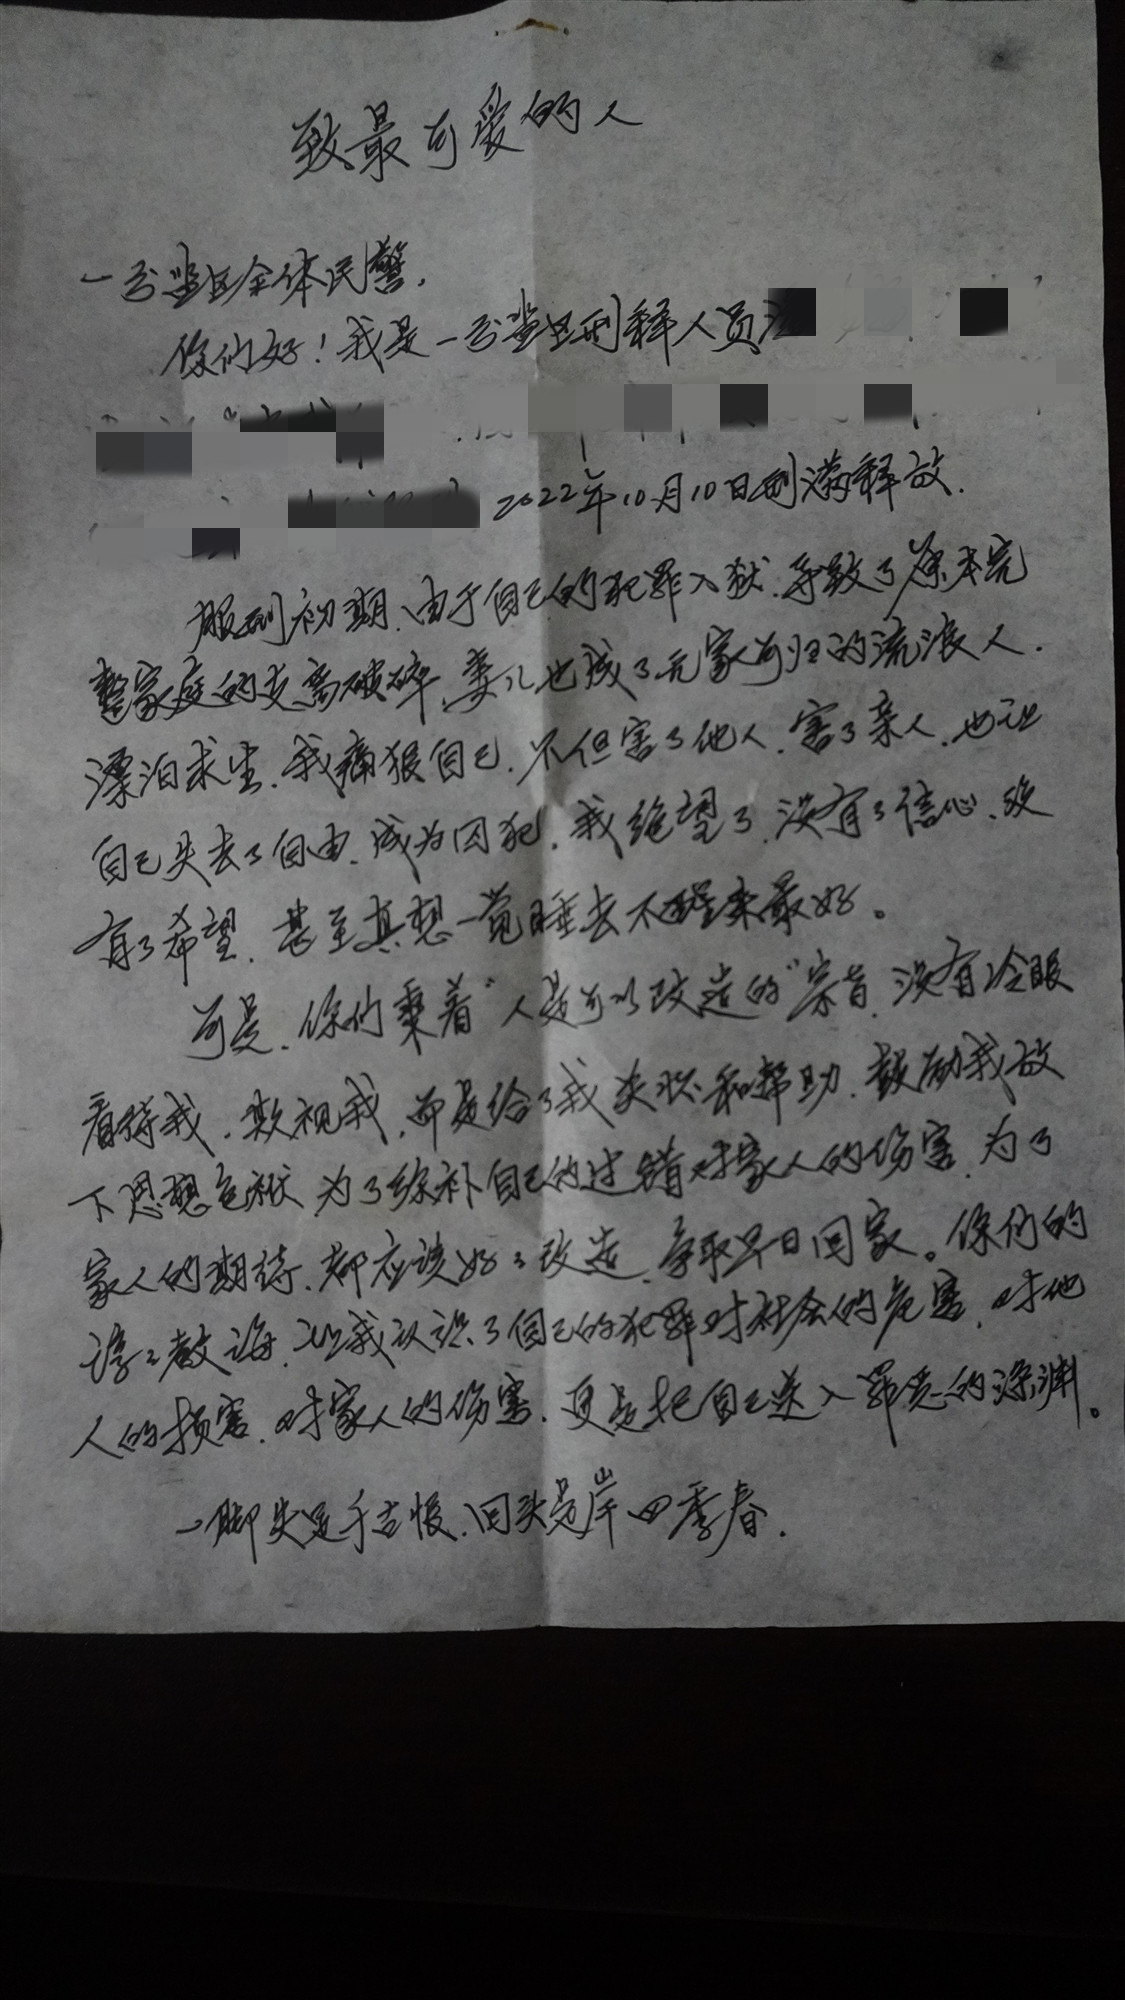 致最可爱的人
一号监区全体民警,
你们好！我是一号监区刑释人员
2022年10月10日刑满释放.
服刑初期、由于自己的犯罪入狱、导致了原本完
整家庭的支离破碎、妻儿也成了无家可归的流浪人.
漂泊求生、我痛狠自己、不但害了他人、害了亲人、也让
自己失去了自由、成为囚犯、我绝望了、没有了信心、没
有了希望、甚至真想一觉睡去不醒来最好。
可是、你们秉着“人是可以改造的”宗旨、没有冷眼
看待我、欺视我、而是给了我关怀和帮助、鼓励我放
下思想包袱、为了弥补自己的过错对家人的伤害、为了
家人的期待、都应该好好改造、争取早日回家。你们的
谆谆教诲、让我认识了自己的犯罪对社会的危害、对他
人的损害、对家人的伤害、更是把自己送入罪恶的深渊。
一脚失足千古恨、回头是岸四季春.